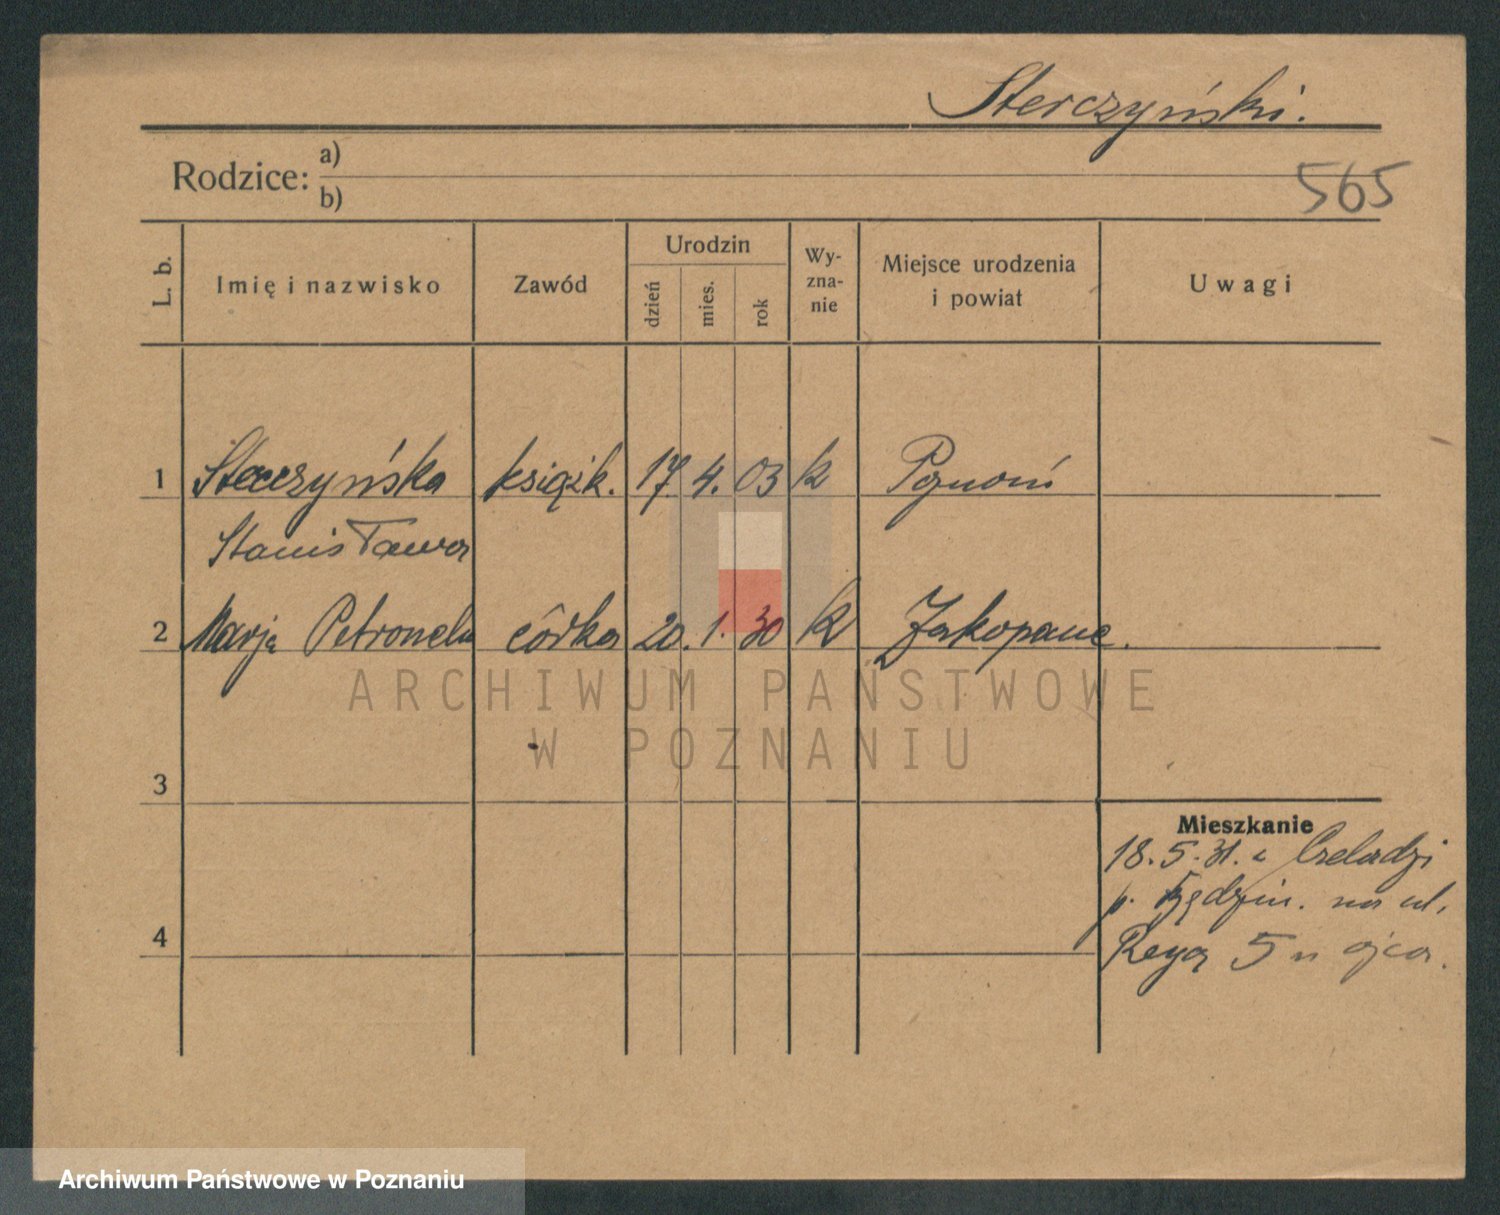 Sterczyński.
Rodzice: a)
b)
565
L. b. Imię i nazwisko Zawód Urodzin dzień mies. rok Wy-zna-nie Miejsce urodzenia i powiat Uwagi
1 Sterczyńska książk. 17. 4. 03 k Poznań
Stanisława
2 Marja Petronela córka 20. 1. 30 k Zakopane.
ARCHIWUM PAŃSTWOWE
W POZNANIU
3
Mieszkanie
18.5.31. z Czeladzi
p. Będzin. na ul.
4
Reya 5 u ojca.
Archiwum Państwowe w Poznaniu